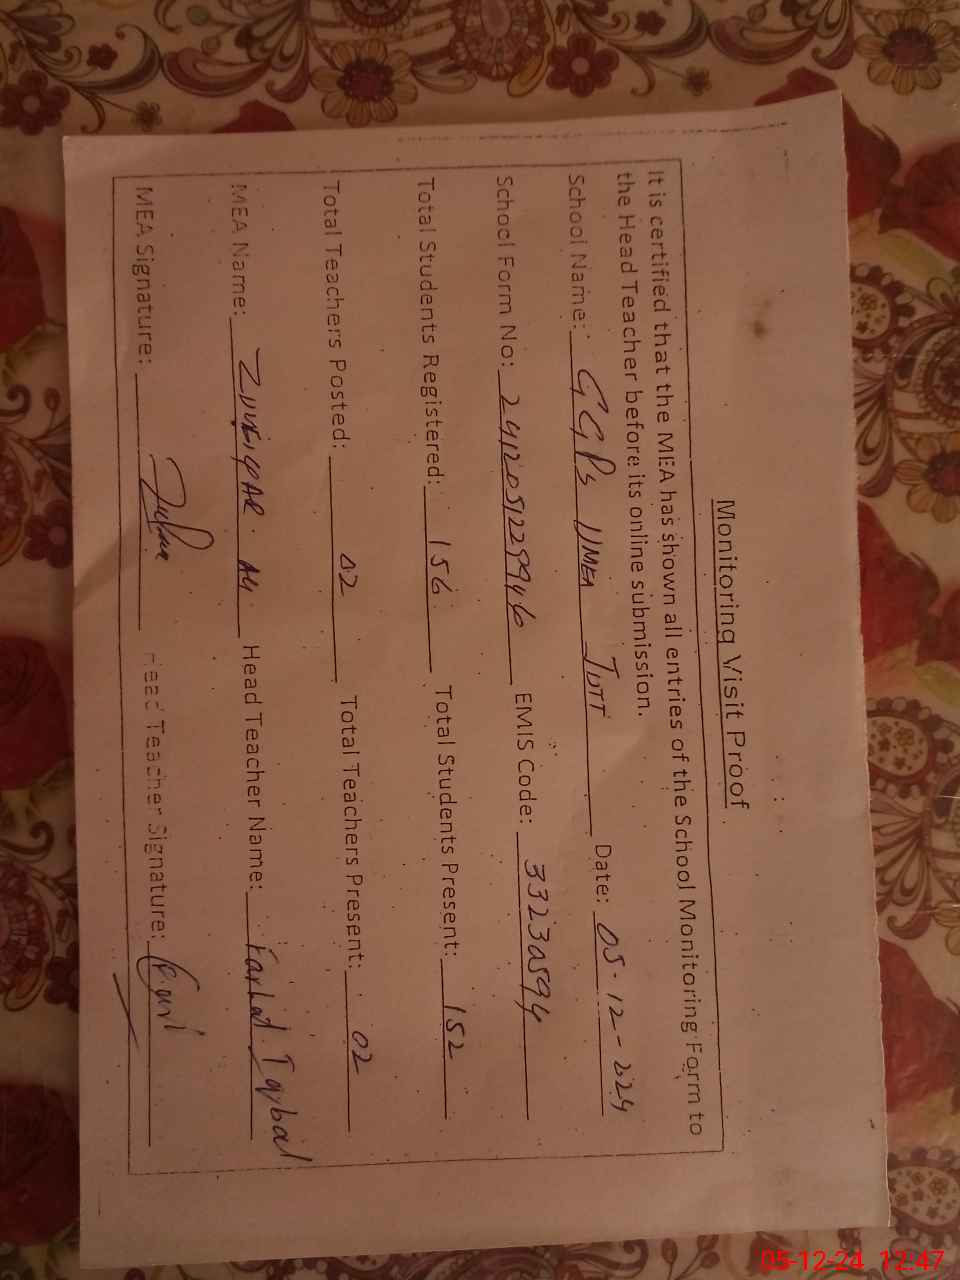 Monitoring Visit Proof
It is certified that the MEA has shown all entries of the School Monitoring Form to
the Head Teacher before its online submission.
School Name: GGPS UMEA JUTT Date: 05.12-224
School Form No: 241205122994b EMIS Code: 33230594
Total Students Registered: 156 Total Students Present: 152
Total Teachers Posted: 02 Total Teachers Present: 02
MEA Name: ALi Head Teacher Name: Iqbal
MEA Signature: Head Teacher Signature:
05-12-24 12:47